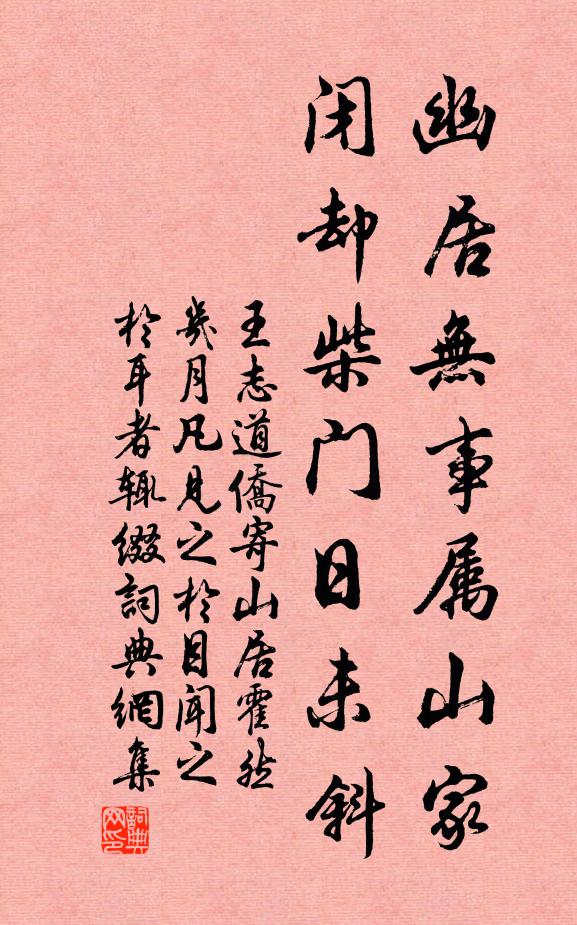 幽居無事属山家
闭却柴门日未斜
王志道僑寄山居霍然
几月凡见之於目闻之
於耳者辄缀詞典網集
詞典
网印